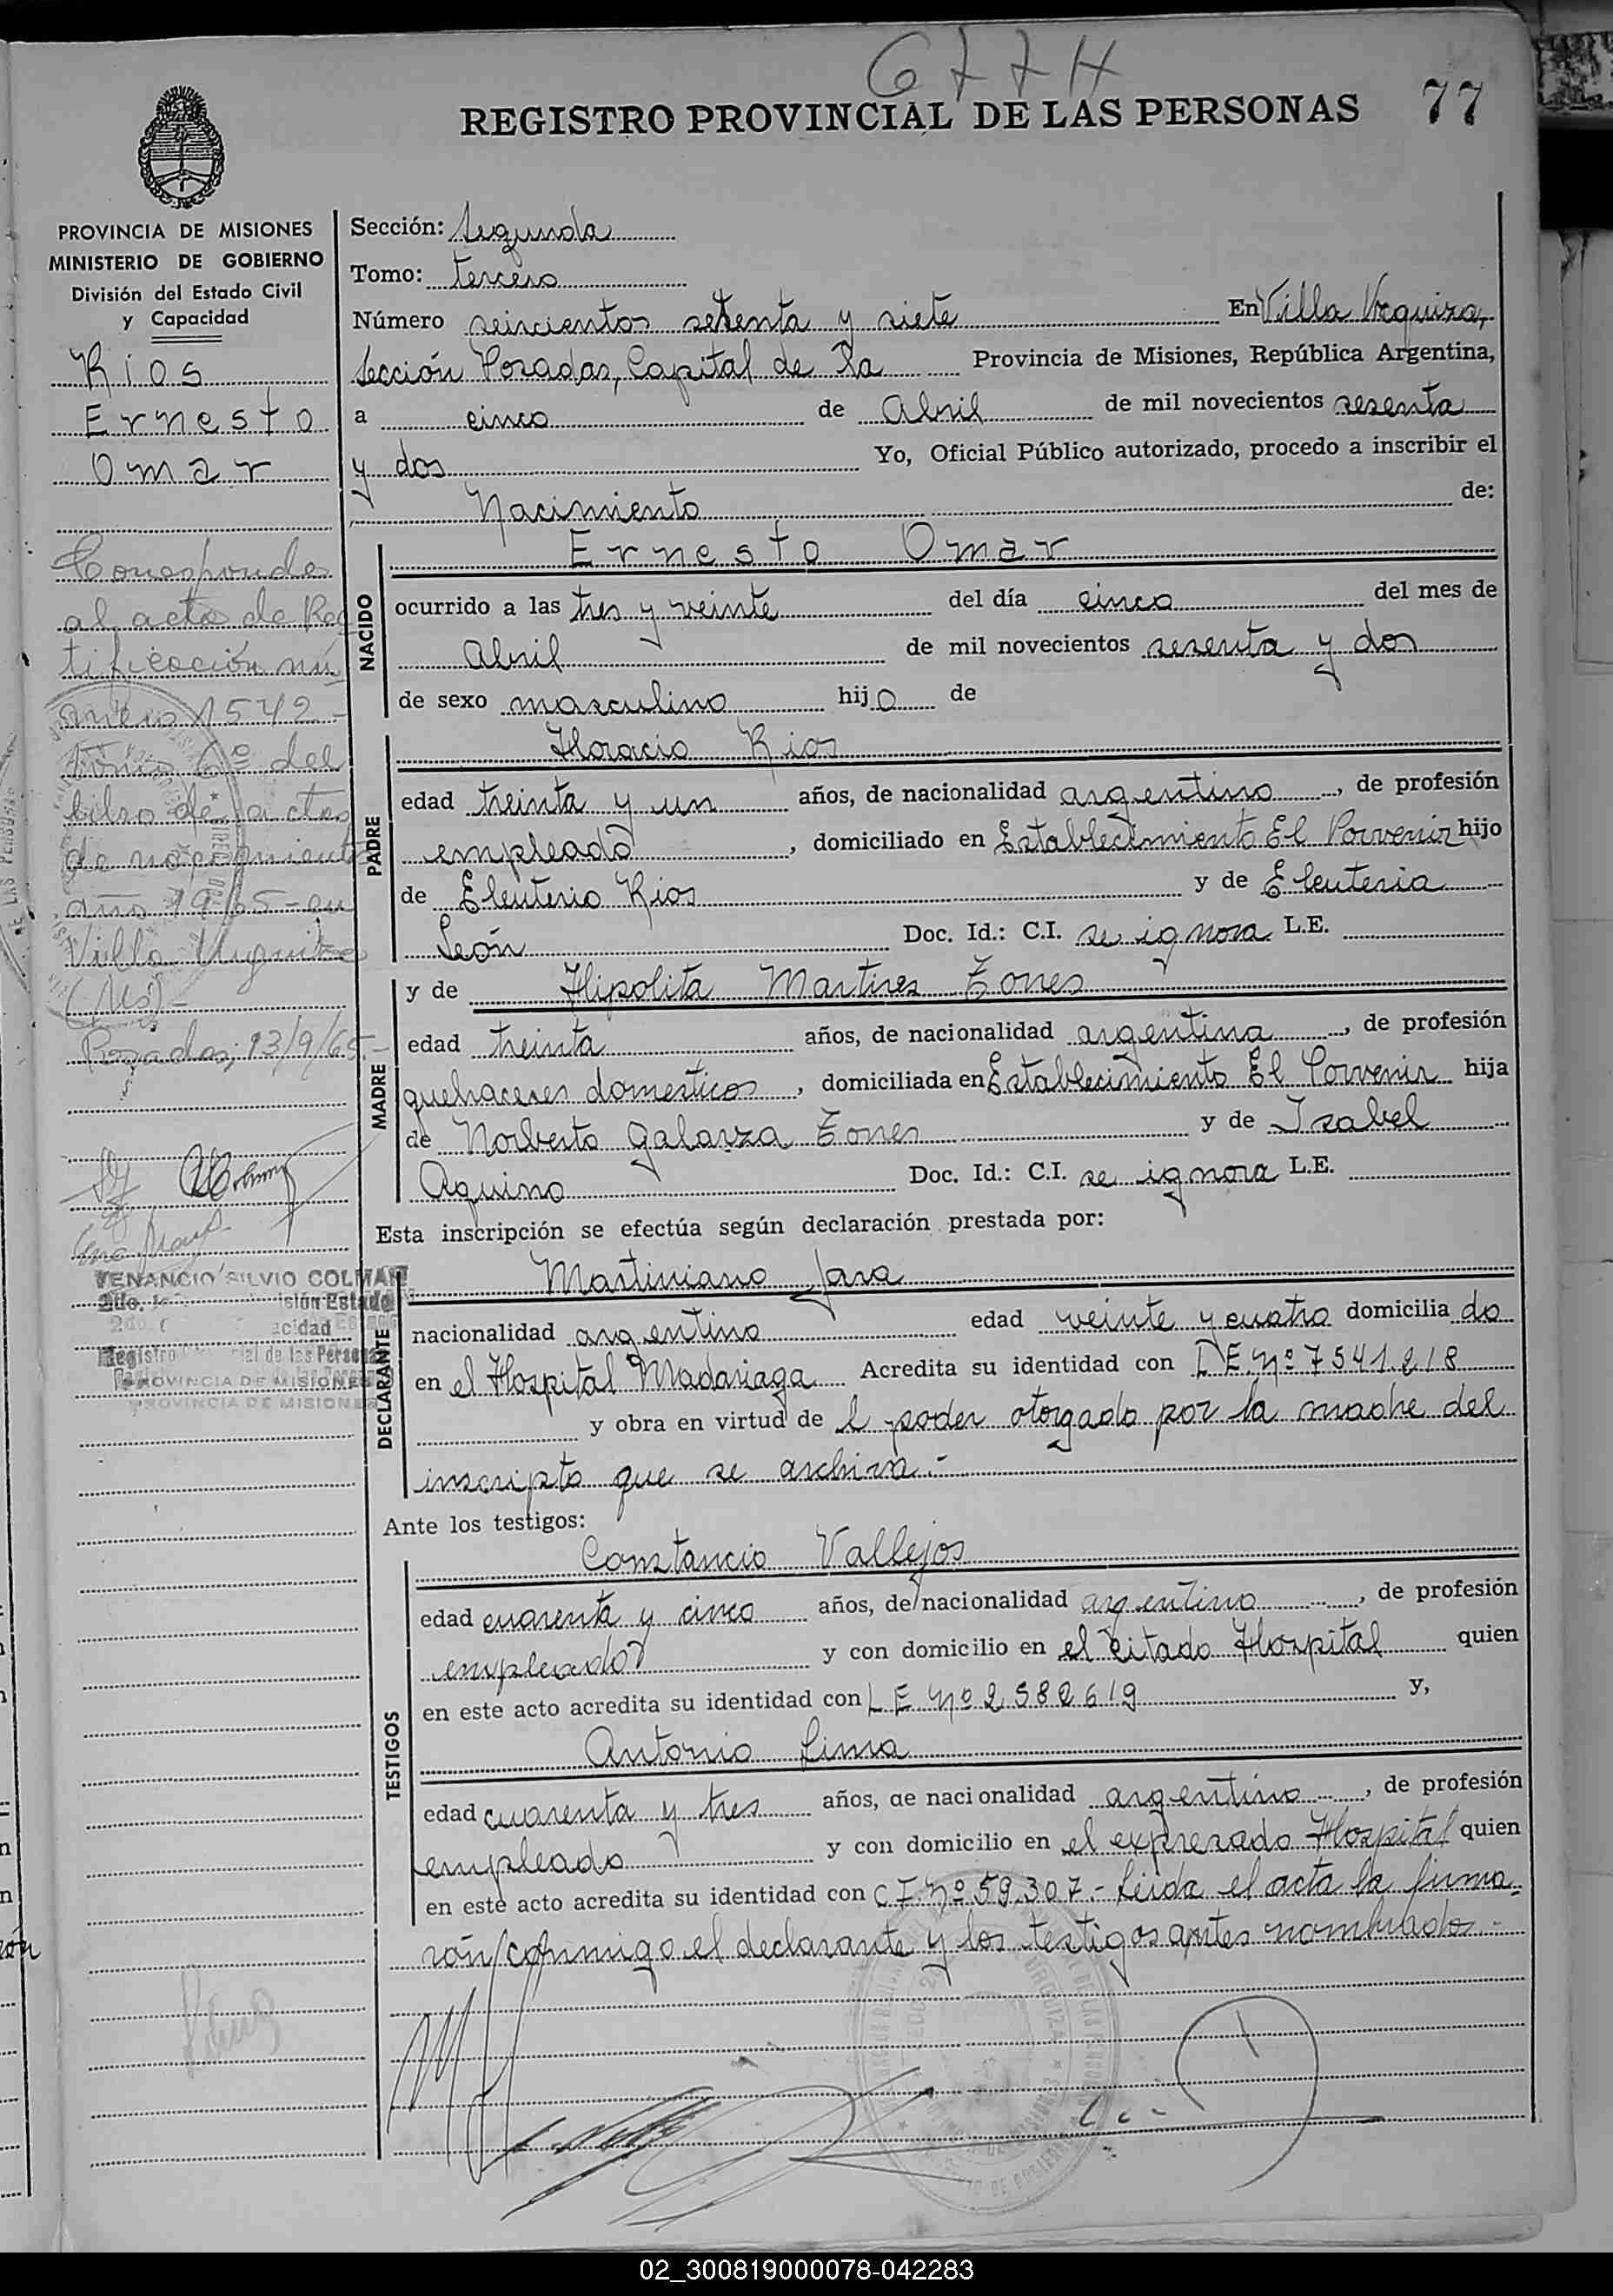 677H
REGISTRO PROVINCIAL DE LAS PERSONAS 77
PROVINCIA DE MISIONES
MINISTERIO DE GOBIERNO
División del Estado Civil
y Capacidad
Rios
Ernesto
Omar
Corresponde
al acta de Rec
tificación nú
mero 1542 -
Tomo 6º del
libro de actas
de nacimiento
año 1965 - en
Villa Urquiza
(Ms)-
Posadas, 13/9/65.-
VENANCIO SILVIO COLMAN
PROVINCIA DE MISIONES
Sección: Segunda
Tomo: tercero
Número seiscientos setenta y siete En Villa Urquiza,
Sección Posadas, Capital de la Provincia de Misiones, República Argentina,
a cinco de Abril de mil novecientos sesenta
y dos Yo, Oficial Público autorizado, procedo a inscribir el
Nacimiento de:
NACIDO
Ernesto Omar
ocurrido a las tres y veinte del día cinco del mes de
Abril de mil novecientos sesenta y dos
de sexo masculino hijo de
PADRE
Horacio Rios
edad treinta y un años, de nacionalidad argentino, de profesión
empleado, domiciliado en Establecimiento El Porvenir hijo
de Eleuterio Rios y de Eleuteria
León Doc. Id.: C.I. se ignora L.E.
MADRE
y de Hipolita Martires Zones
edad treinta años, de nacionalidad argentina, de profesión
quehaceres domesticos, domiciliada en Establecimiento El Porvenir hija
de Norberto Galarza Zones y de Isabel
Aquino Doc. Id.: C.I. se ignora L.E.
Esta inscripción se efectúa según declaración prestada por:
DECLARANTE
Martiniano Jara
nacionalidad argentino edad veinte y cuatro domiciliado
en el Hospital Madariaga Acredita su identidad con LE Nº 7541.218
y obra en virtud de l poder otorgado por la madre del
inscripto que se archiva.-
Ante los testigos:
TESTIGOS
Constancio Vallejos
edad cuarenta y cinco años, de nacionalidad argentino, de profesión
empleado y con domicilio en el citado Hospital quien
en este acto acredita su identidad con LE Nº 2582619 y,
Antonio Lima
edad cuarenta y tres años, de nacionalidad argentino, de profesión
empleado y con domicilio en el expresado Hospital quien
en este acto acredita su identidad con CI Nº 59.307.- Leida el acta la firma-
rón conmigo el declarante y los testigos antes nombrados.-
02_300819000078-042283